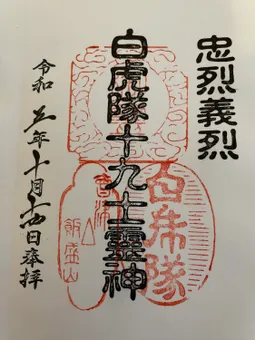 忠烈義烈
白虎隊十九士靈神
令和五年十月十四日奉拝
白虎隊
会津
飯盛山